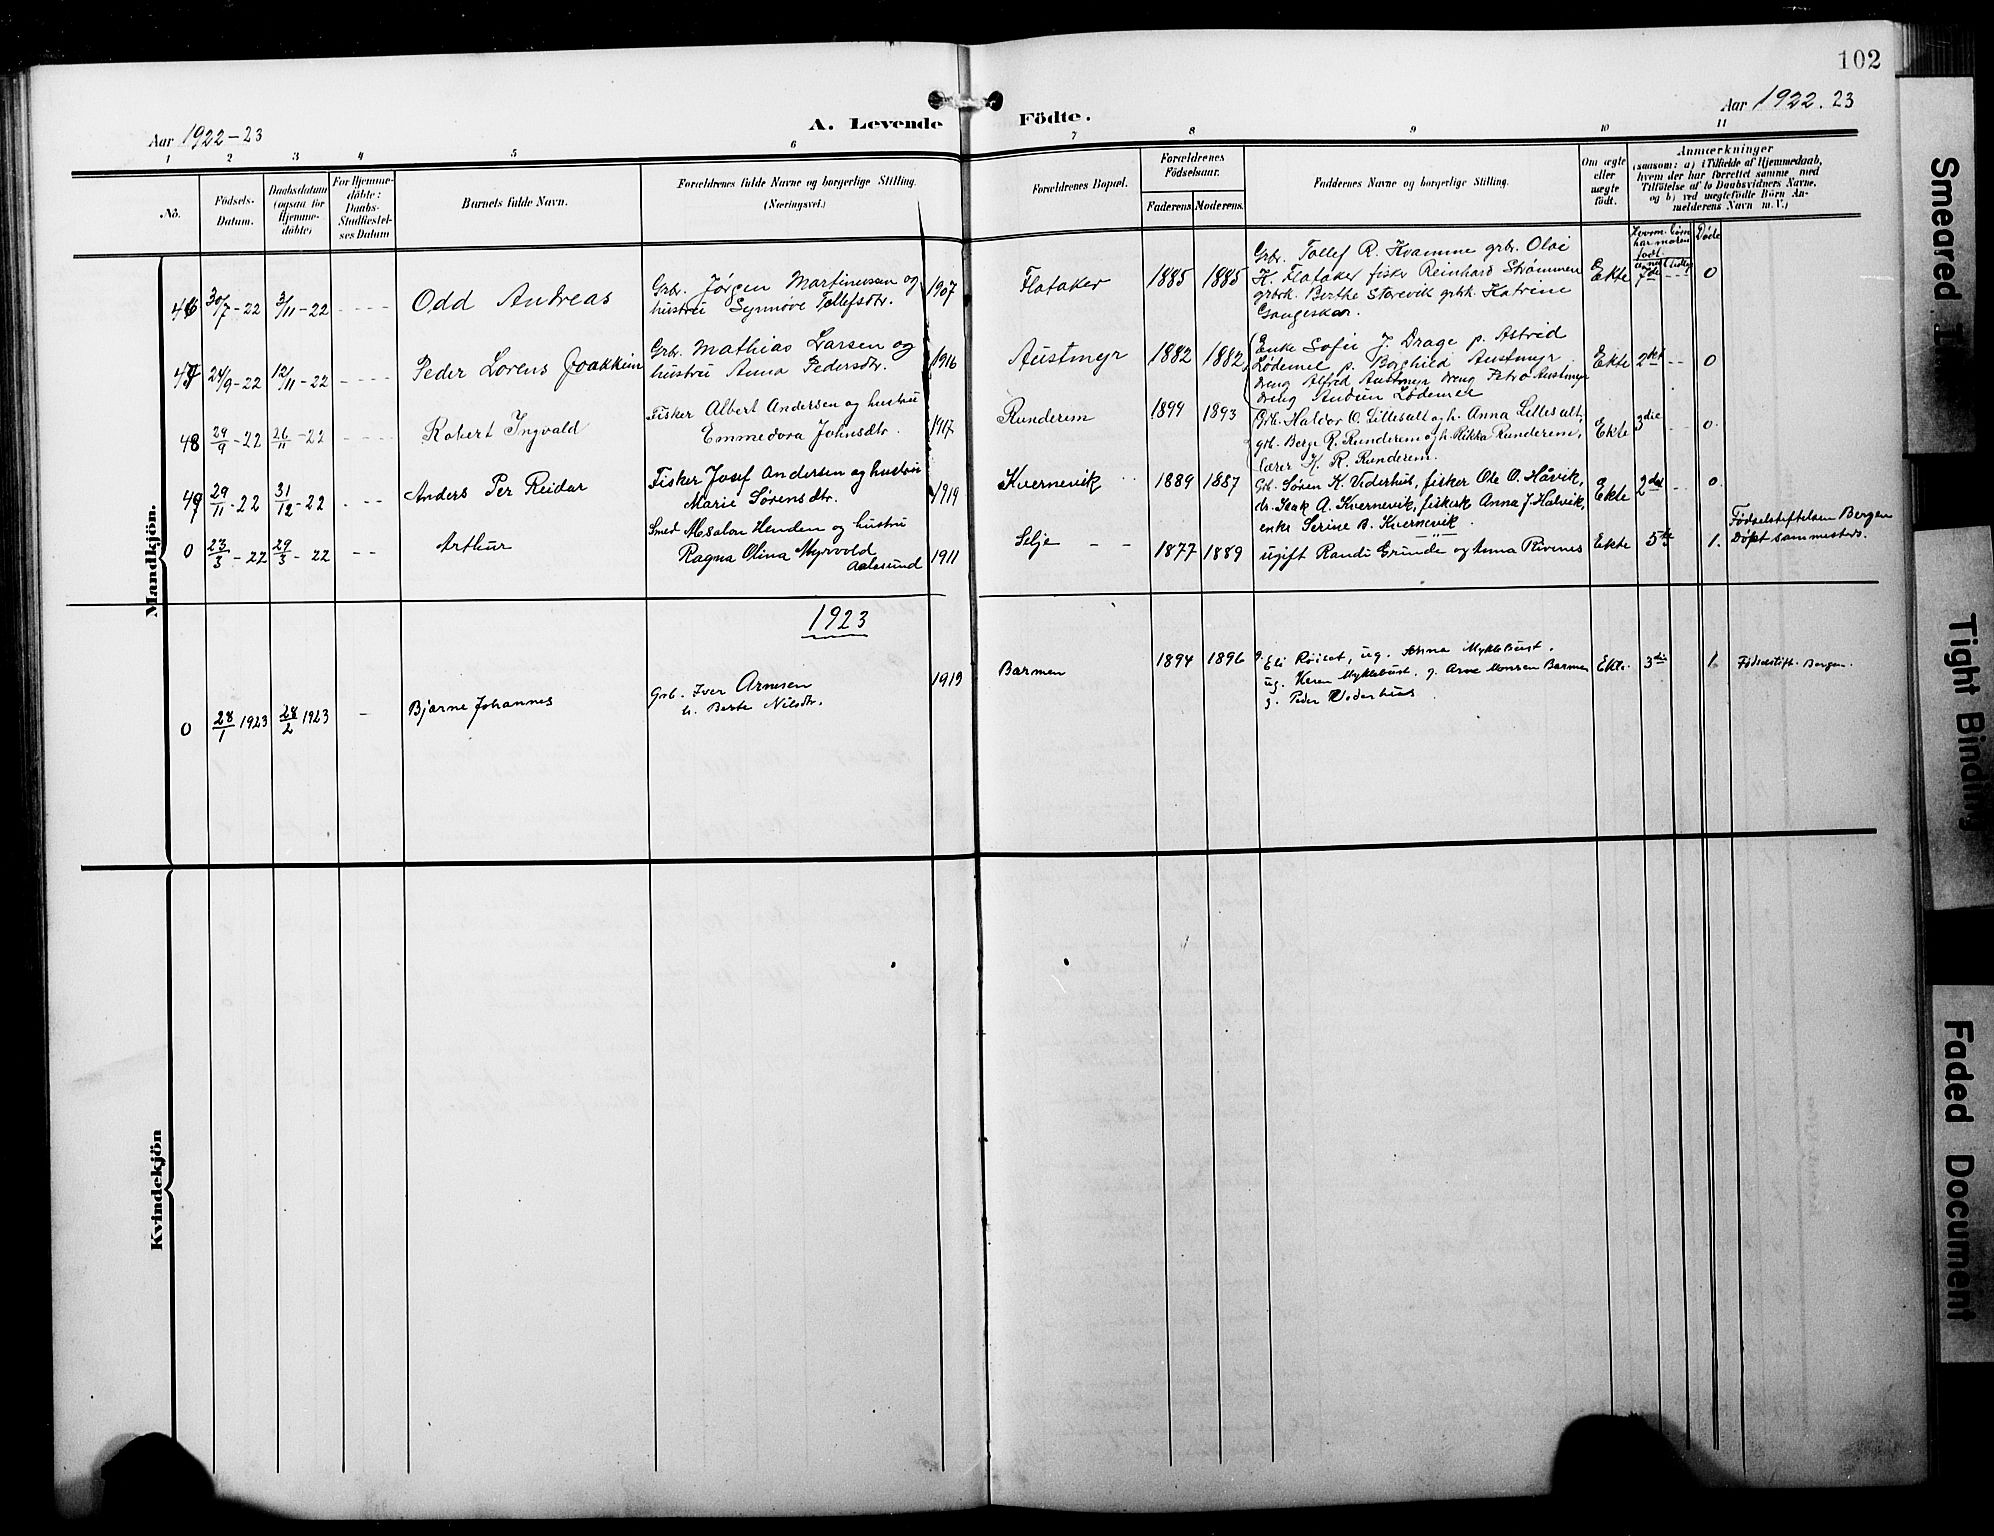 102
Aar 1922-23
A. Levende Födte.
Aar 1922. 23
1 2 3 4 5 6 7 8 9 10 11
No.
Födsels-Datum.
Daabsdatum (ogsaa för Hjemme-döbte)
For Hjemme-döbte: Daabs-Stadfæstel-ses Datum
Barnets fulde Navn.
Forældrenes fulde Navne og borgerlige Stilling. (Næringsvei.)
Forældrenes Bopæl.
Forældrenes Födselsaar.
Faderens Moderens.
Faddernes Navne og borgerlige Stilling.
Om ægte eller uægte födt.
Anmærkninger
(saasom: a) i Tilfælde af Hjemmedaab, hvem der har forrettet samme, med Tilföielse af to Daabsvidners Navne, og b) ved uægtefödte Börn An-melderens Navn m. V.)
Døde
Mandkjön.
46 30/7-22 3/11-22 Odd Andreas
Grbr. Jørgen Martinussen og
hustru Synnøve Tollefsdtr. 1907
Flataker 1885 1885
Grbr. Tollef R. Hvamme grbr. Olai
H. Flataker fisker Reinhard Strømmen
grbrk. Berthe Starevik grbrk. Katrine
Gangeskar.
Ekte 7de 0
47 24/9-22 12/11-22 Peder Lorens Joakkim
Grbr. Mathias Larsen og
hustru Anna Pedersdtr. 1916
Austmyr 1882 1882
Enke Sofie J. Drage p. Astrid
Lødemel p. Borghild Austmyr
dreng Alfred Austmyr dreng Petro Austmyr
dreng Andien Lødemel
Ekte 2det 0
48 29/9-22 26/11-22 Robert Ingvald
Fisker Albert Andersen og hustru
Emmedora Johnsdtr. 1917
Runderem 1894 1893
Grb. Haldor O. Lillesalt og h. Anna Lillesalt,
grb. Berge R. Runderem og h. Rikka Runderem,
lærer K. R. Runderem.
Ekte 3die 0.
49 29/11-22 31/12-22 Anders Per Reidar
Fisker Josef Andersen og hustru
Marie Sørensdtr. 1919
Kvernevik 1889 1887
Grb. Søren K. Vederhus, fisker Ole O. Håvik,
dr. Isak A. Kvernevik, fiskersk Anna J. Halvik,
enke Serine B. Kvernevik.
Ekte 2det 0.
0 23/3-22 29/3-22 Arthur
Smed Absalon Henden og hustru
Ragna Olina Myrvold
Aalesund 1911
Selje 1877 1889
ugift Randi Grinde og Anna Rivenes
Ekte 5te 1.
Fødselstiftelsen Bergen
Døpt sammesteds.
1923
0 28/1 1923 28/2 1923 - Bjarne Johannes
Grb. Iver Arnesen
h. Berte Nilsdtr. 1919
Barmen 1894 1896
g. Eli Røiset, ug. Anna Myklebust.
ug. Karen Myklebust, g. Arne Monsen Barmen
g. Peder Vederhus.
Ekte. 3die 1.
Fødselsstift. Bergen.
Kvindekjön
Smeared I
Tight Binding
Faded Document